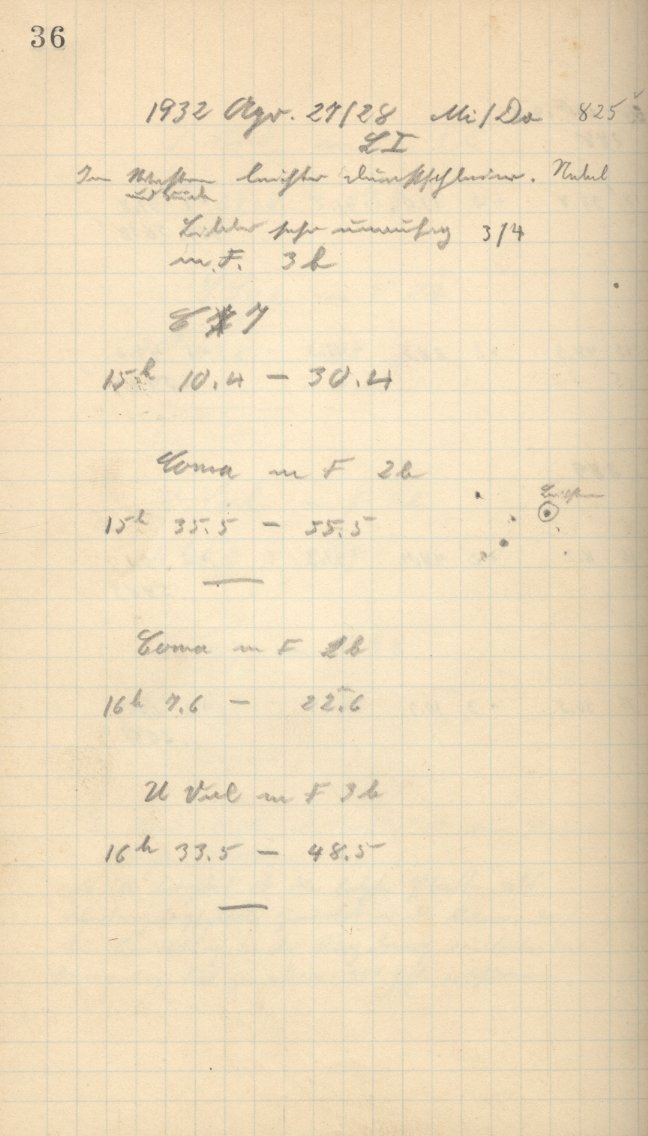 36
1932 Apr. 27/28 Mi/Do 825
LI
Im Westen leichter Dunstschleier. Nebel
Bilder sehr unruhig 3/4
m. F. 3 b
15h 10.4 — 30.4
Coma m F 2b
15h 35.5 — 55.5
Coma m F b
16h 7.6 — 22.6
m F 3b
16h 33.5 — 48.5